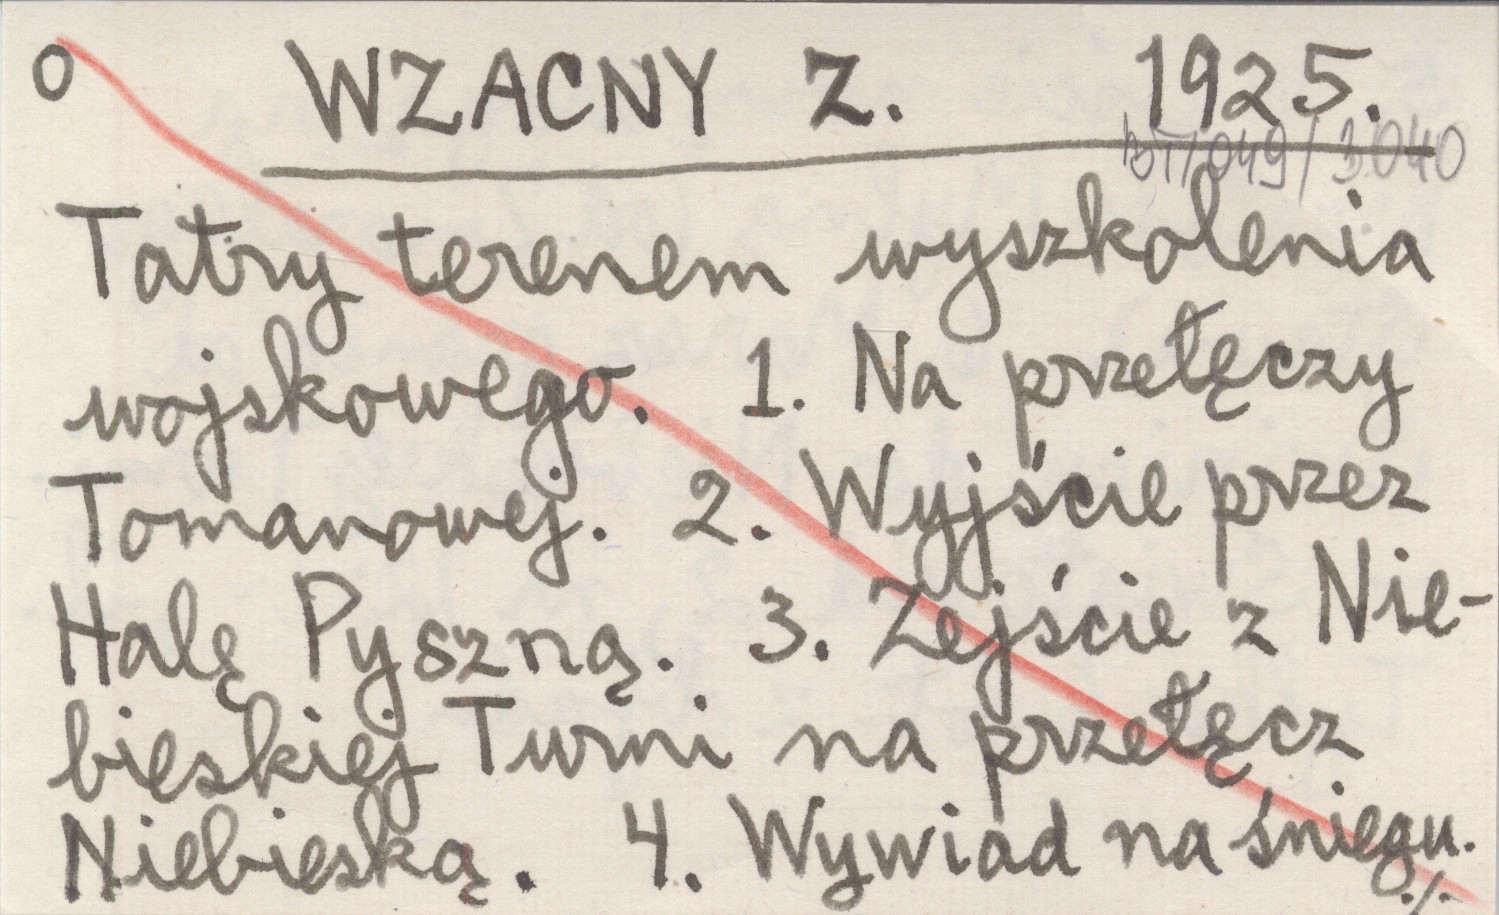 O WZACNY Z. 1925.
BT/049/3040
Tatry terenem wyszkolenia
wojskowego. 1. Na przełęczy
Tomanowej. 2. Wyjście przez
Halę Pyszną. 3. Zejście z Nie-
bieskiej Turni na przełęcz
Niebieską. 4. Wywiad na śniegu.
./-